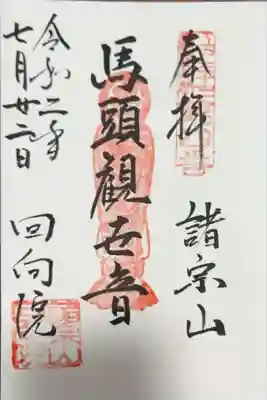 奉拝
諸宗山
馬頭観世音
令和二年
七月廿二日
回向院